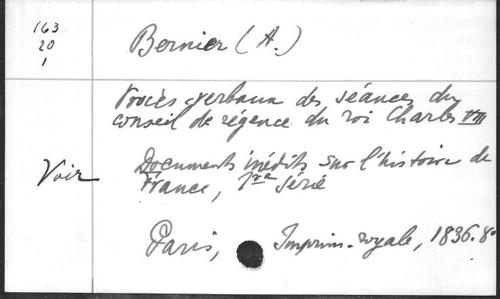 163
20
1
Bernier (A.)
Procès verbaux des séances du
conseil de régence du roi Charles VIII
Voir
Documents inédits sur l'histoire de
France, 1re série
Paris, Imprim. royale, 1836. 8o